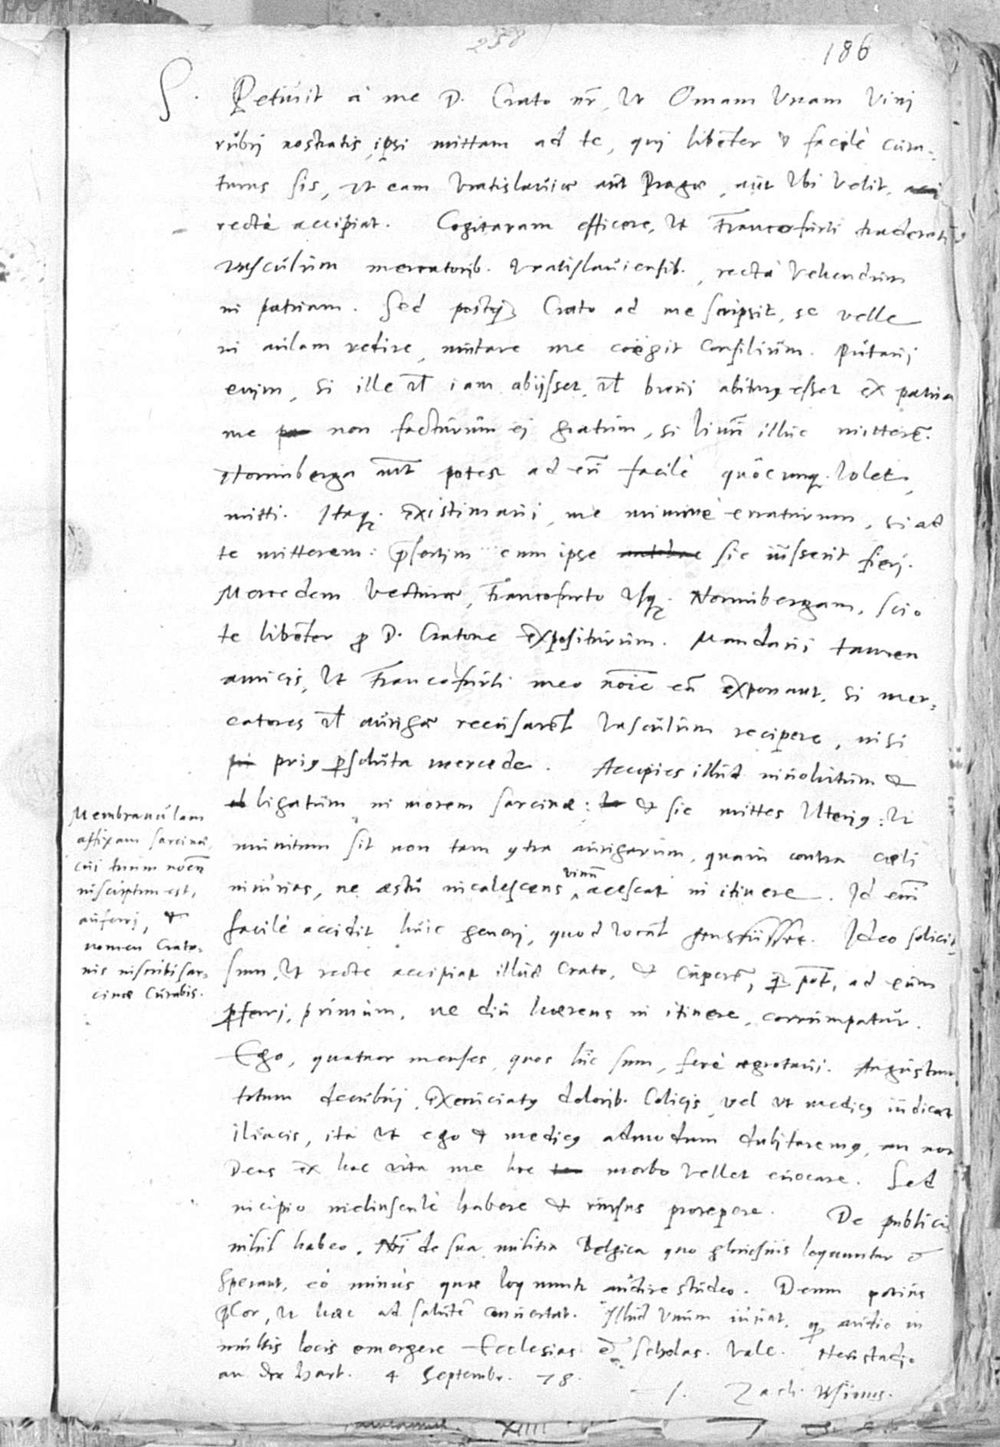 258
186
S. Petivit a me D. Crato nr, ut Omam Unam Vini
rubri nostratis, ipsi mittam ad te, qui libēter & facilè cura-
turus sis, ut eam Vratislaviæ aut Pragæ, aut ubi velit,
rectè accipiat. Cogitaram efficere, ut Francofurti traderet
vasculum mercatorib. Vratislauiensib. rectà vehendum
in patriam. Sed postq Crato ad me scripsit, se velle
in aulam redire, mutare me coegit consilium. Putavi
enim, si ille vl iam abijsset, vl brevi abiturus esset ex patria
me non facturum ei gratum, si vinū illuc mitterē.
Norimberga aūt potest ad eū facilè quocunq. volet,
mitti. Itaq. existimavi, me minimè erraturum, si ad
te mitterem: præsertim cum ipse sic iusserit fieri.
Mercedem vecturæ, Francofurto usq. Norimbergam, scio
te libēter p D. Cratone expositurum. Mandavi tamen
amicis, ut Francofurti meo noīe eā exponant, si mer-
catores vl aurigæ recusarēt vasculum recipere, nisi
prius persoluta mercede. Accipies illud involutum &
ligatum, in morem sarcinæ: & sic mittes ulterius: ut
munitum sit non tam contra aurigarum, quam contra cæli
iniurias, ne æstu incalescens vinū acescat in itinere. Id enī
facilè accidit huic generi, quod vocāt
Ideo solicit
sum, ut recte accipiat illud Crato, & cuperē, ad eum
perferri, primum, ne diu hærens in itinere, corrumpatur.
Membranulam
affixam sarcinæ,
cui tuum nomē
inscriptum est,
auferri, &
nomen Crato-
nis inscribi sar-
cinæ curabis.
Ego, quatuor menses, quos hic sum, ferè ægrotavi. Augustum
totum decubui, excruciatus dolorib. Colicis, vel ut medicus iudicat
iliacis, ita ut ego & medicus admodum dubitaremus, an non
Deus ex hac vita me hoc morbo vellet evocare. Sed
incipio meliusculè habere & rursus prorepere. De publicis
nihil habeo. Nři de sua militia Belgica quo gloriosius loquuntur &
sperant, eò minùs quæ loquuntur audire studeo. Deum potius
precor, ut hæc ad salutē convertat. Illud unum iuvat, quod audio in
multis locis emergere Ecclesias & scholas. Vale. Neustadij
an der Hart. 4 Septembr. 78.
Zach. Ursinus.
XIIII